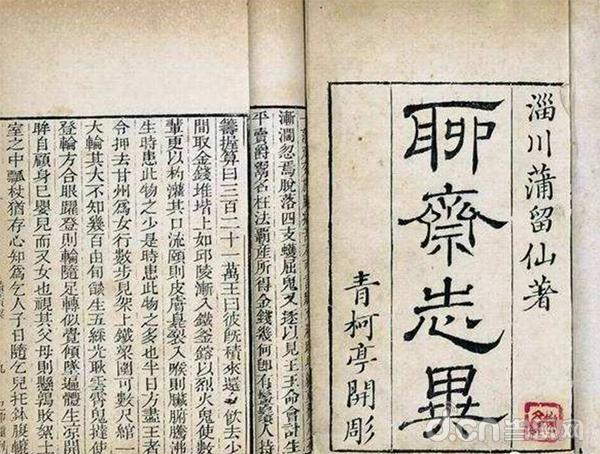 淄川蒲留仙著
聊齋志異
青柯亭開彫
漸闊忽焉脫落四支蠖屈鬼又逐以見王王命會計生
平賣爵鬻名枉法霸產所得金錢幾何即有鬚人持
籌握算曰三百二十一萬王曰彼既積來還飲去少
間取金錢堆堦上如邱陵漸入鐵釜鎔以烈火鬼使數
輩更以杓灌其口流頤則皮膚臭裂入喉則臟腑騰沸
生時患此物之少是時患此物之多也半日方盡王者
令押去甘州爲女行數步見架上鐵梁圍可數尺綰一
火輪其大不知幾百由旬燄生五綵光耿雲霄鬼撻使
登輪方合眼躍登則輪隨足轉似覺傾墜遍體生涼開
眸自顧身已嬰兒而又女也視其父母則懸鶉敗絮土
室之中瓢杖猶存心知爲乞人子日隨乞兒托鉢腹
d.cn当乐网